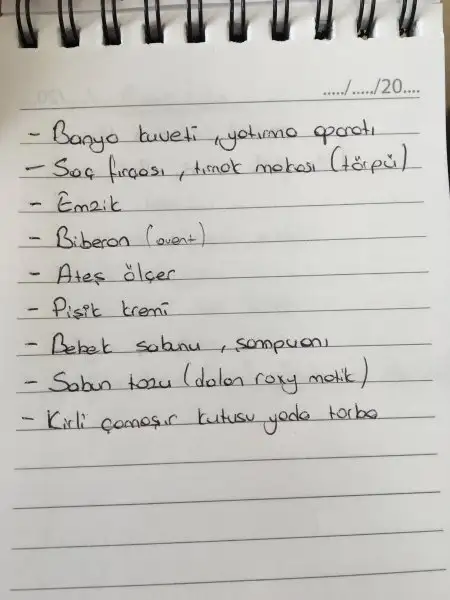 ...../...../20....
- Banyo küveti, yatırma aparatı
- Saç fırçası, tırnak makası (törpü)
- Emzik
- Biberon (avent)
- Ateş ölçer
- Pişik kremi
- Bebek sabunu, şampuanı
- Sabun tozu (dalan roxy matik)
- Kirli çamaşır kutusu yada torba